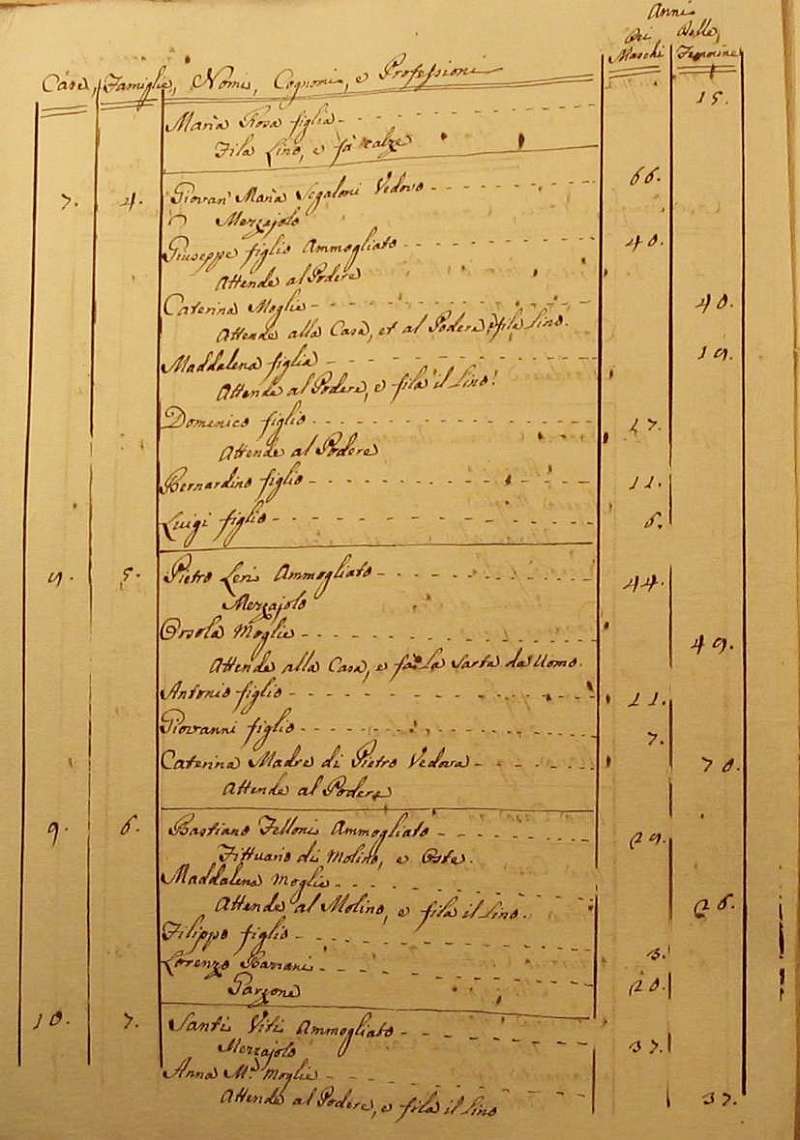 Anni
Dei Maschi Delle Femmine
Case, Famiglie, Nomi, Cognomi, e Professioni
Maria Rosa figlia 15.
Fila Lino, e fà calze
7. 4. Giovan' Maria Segaloni Vedovo 66.
Mezzajolo
Giuseppe figlio Ammogliato 40.
Attende al Podere
Caterina Moglie 40.
Attende alla Casa, et al Podere e fila Lino.
Maddalena figlia 19.
Attende al Podere, e fila il Lino.
Domenico figlio 17.
Attende al Podere
Bernardino figlio 11.
Luigi figlio 6.
9. 5. Pietro Ammogliato 44.
Mezzajolo
Orsola Moglie 49.
Attende alla Casa, e fà la Sarta da Uomo.
Antonio figlio 11.
Giovanni figlio 7.
Caterina Madre di Pietro Vedova 70.
Attende al Podere
9. 6. Bastiano Felloni Ammogliato 29.
Fittuario di Molino, e Oste.
Maddalena Moglie 26.
Attende al Molino, e fila il Lino.
Filippo figlio 3.
Lorenzo 20.
Garzone
10. 7. Santi Viti Ammogliato 37.
Mezzajolo
Anna M.ª Moglie 37.
Attende al Podere, e fila il Lino